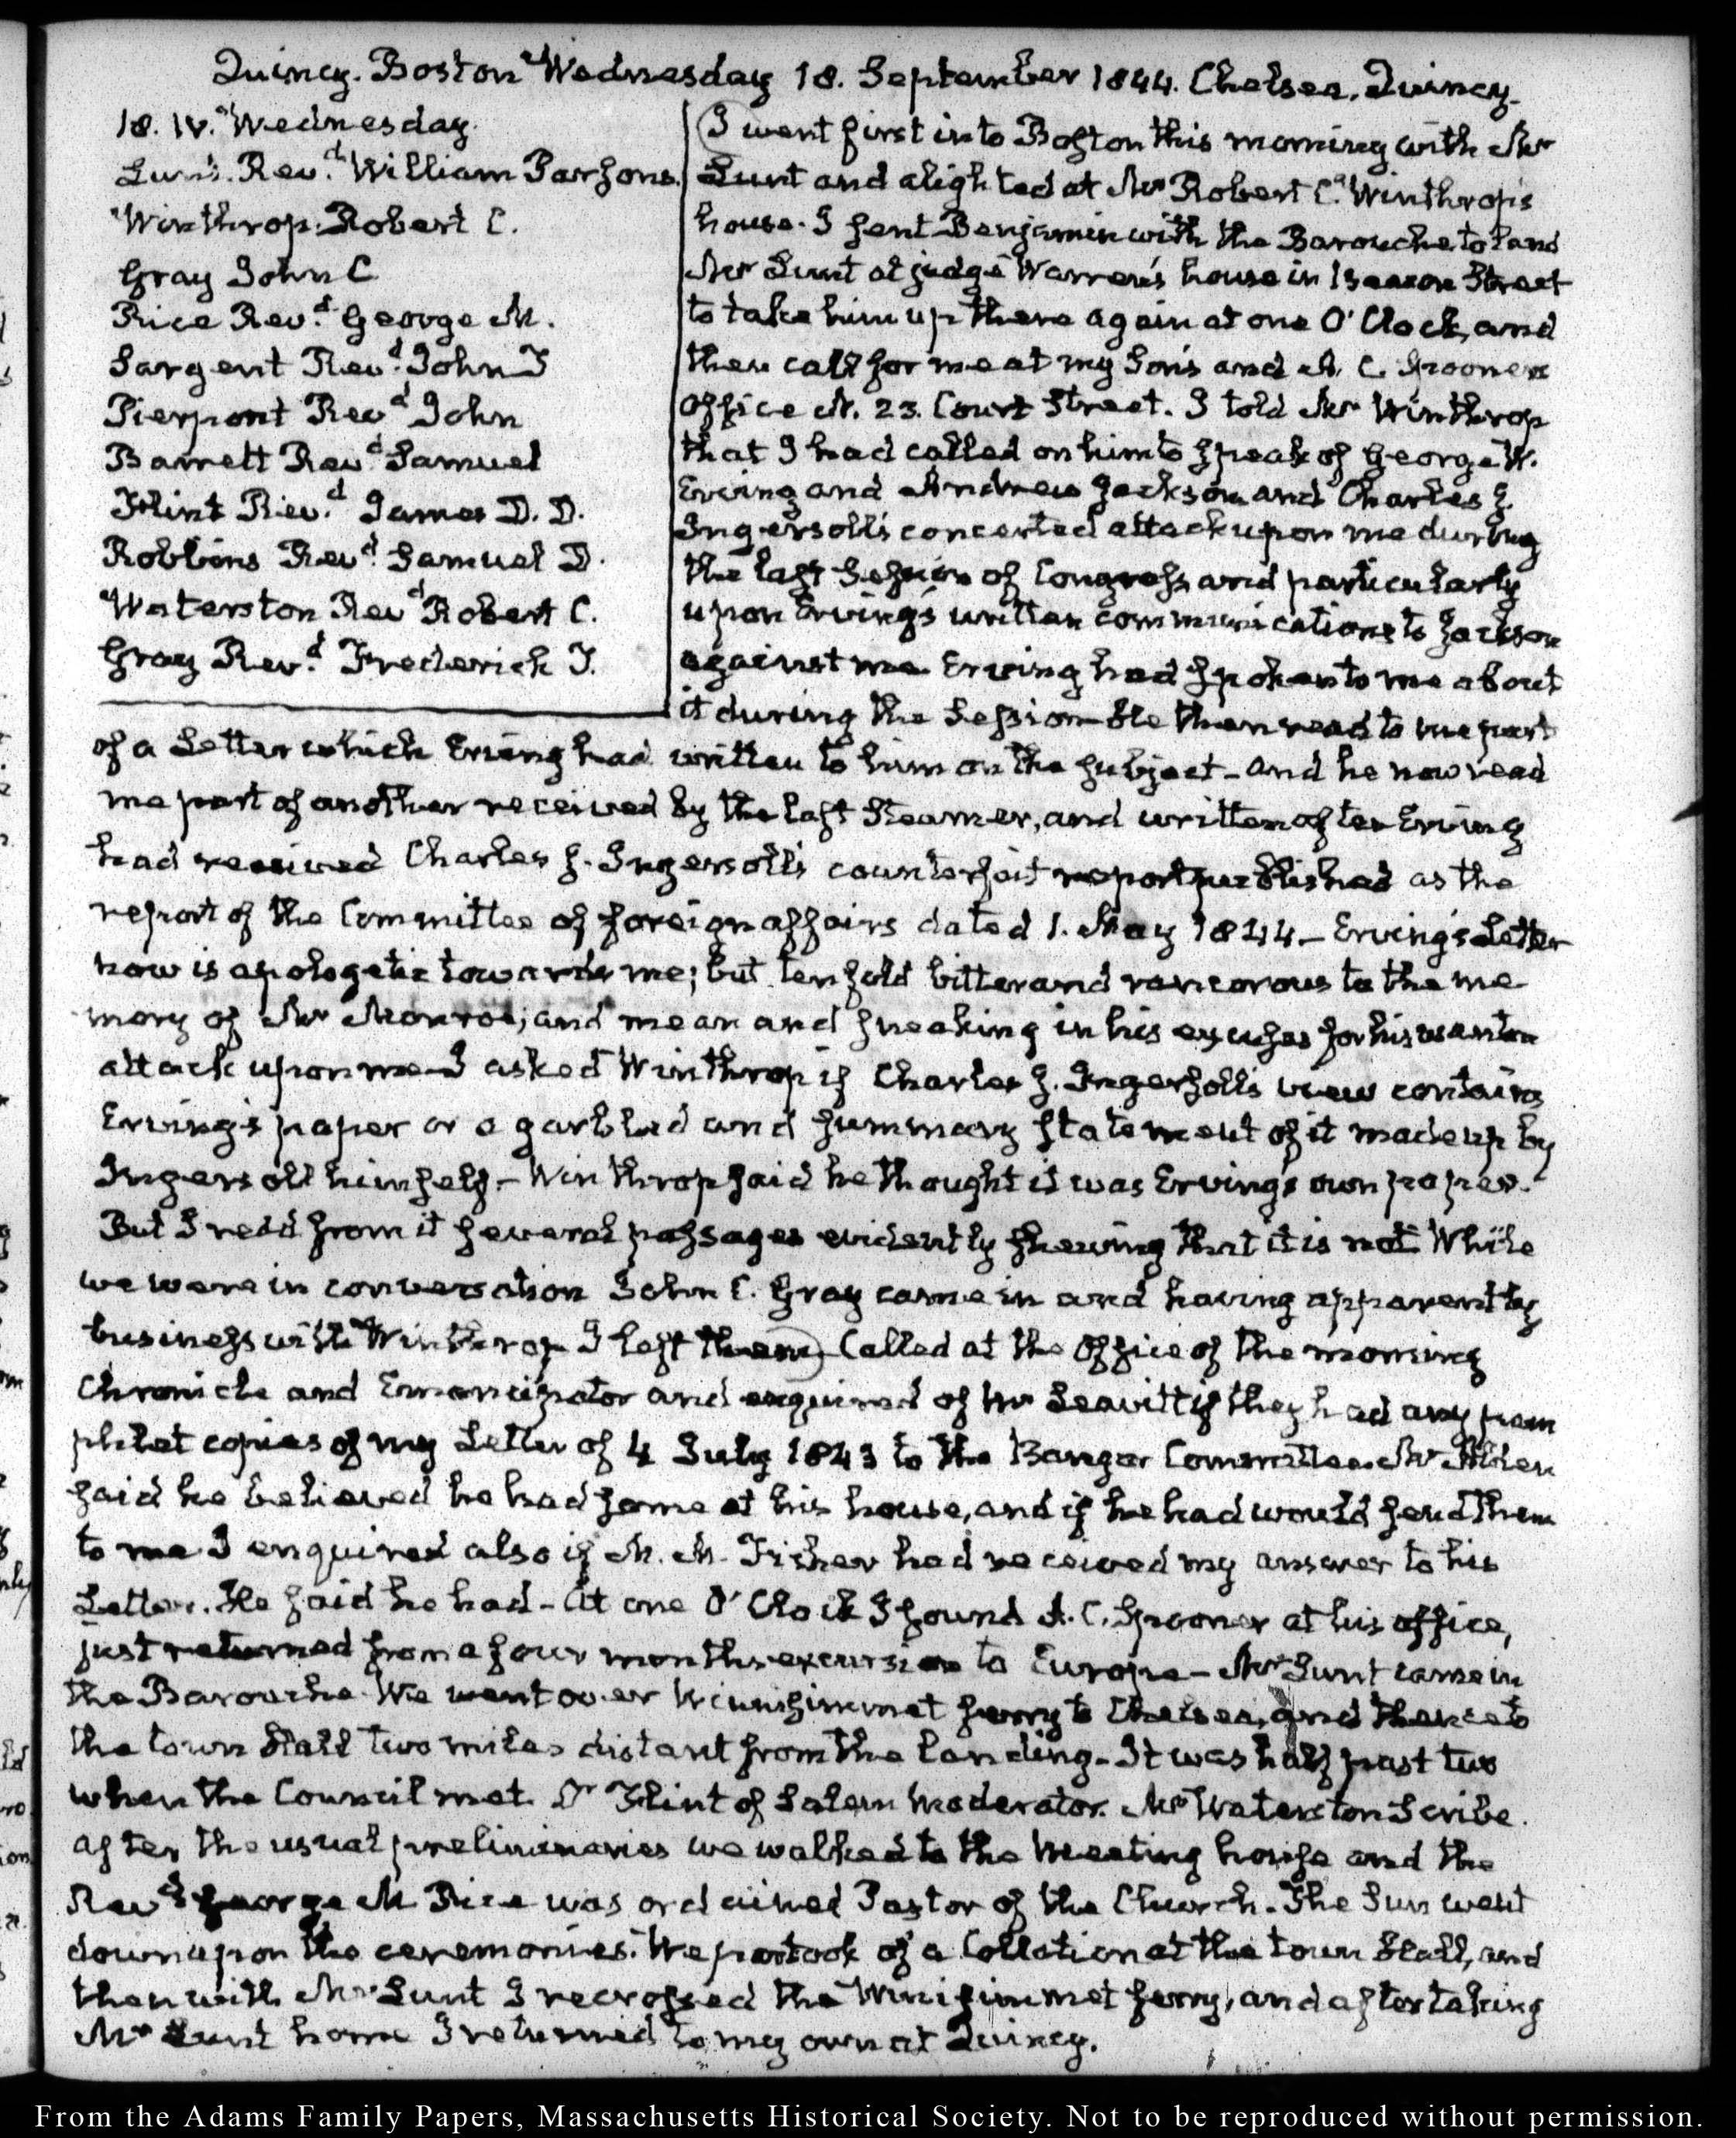 Quincy. Boston Wednesday 18. September 1844. Chelsea, Quincy.
18. IV. Wednesday.
Lunt. Rev.d William Parsons.
Winthrop. Robert C.
Gray John C
Rice Rev.d George M.
Sargent Rev.d John T
Pierpont Rev.d John
Barrett Rev.d Samuel
Flint Rev.d James D.D.
Robbins Rev.d Samuel D.
Waterston Rev.d Robert C.
Gray Rev.d Frederick T.
(I went first into Boston this morning with Mr
Lunt and alighted at Mr Robert C. Winthrop's
house. I sent Benjamin with the Barouche to land
Mr Lunt at judge Warren's house in Beacon Street
to take him up there again at one O'Clock, and
then call for me at my Son's and A. C. Spooner's
office N. 23. Court Street. I told Mr Winthrop
that I had called on him to speak of George W.
Erving and Andrew Jackson and Charles J.
Ingersoll's concerted attack upon me during
the last Session of Congress and particularly
upon Erving's written communications to Jackson
against me Erving had spoken to me about
it during the Session. He then read to me part
of a Letter which Erving had written to him on the subject - and he now read
me part of another received by the last Steamer, and written after Erving
had received Charles J. Ingersoll's counterfeit report published as the
report of the Committee of foreign affairs dated 1. May 1844 - Erving's Letter
now is apologetic towards me; but tenfold bitter and rancorous to the me
mory of Mr Monroe; and mean and sneaking in his excuses for his wanton
attack upon me - I asked Winthrop if Charles J. Ingersoll's view contains
Erving's paper or a garbled and summary statement of it made up by
Ingersoll himself. - Winthrop said he thought it was Erving's own paper.
But I read from it several passages evidently shewing that it is not While
we were in conversation John C. Gray came in and having apparently
business with Winthrop I left them) Called at the Office of the morning
Chronicle and Emancipator and enquired of Mr Leavitt if they had any pam
phlet copies of my Letter of 4 July 1843 to the Bangor Committee. Mr Alden
said he believed he had some at his house, and if he had would send them
to me I enquired also if M. M. Fisher had received my answer to his
Letter. He said he had - At one O'Clock I found A. C. Spooner at his office,
just returned from a four months excursion to Europe - Mr Lunt came in
the Barouche. We went over Winnisimmet ferry to Chelsea, and thence to
the town Hall two miles distant from the landing - It was half past two
when the Council met. Dr Flint of Salem Moderator. Mr Waterston Scribe.
after the usual preliminaries we walked to the Meeting house and the
Rev.d George M Rice was ordained Pastor of the Church. The Sun went
down upon the ceremonies. We partook of a Collation at the town Hall, and
then with Mr Lunt I recrossed the Winisimmet ferry, and after taking
Mr Lunt home I returned to my own at Quincy.
From the Adams Family Papers, Massachusetts Historical Society. Not to be reproduced without permission.